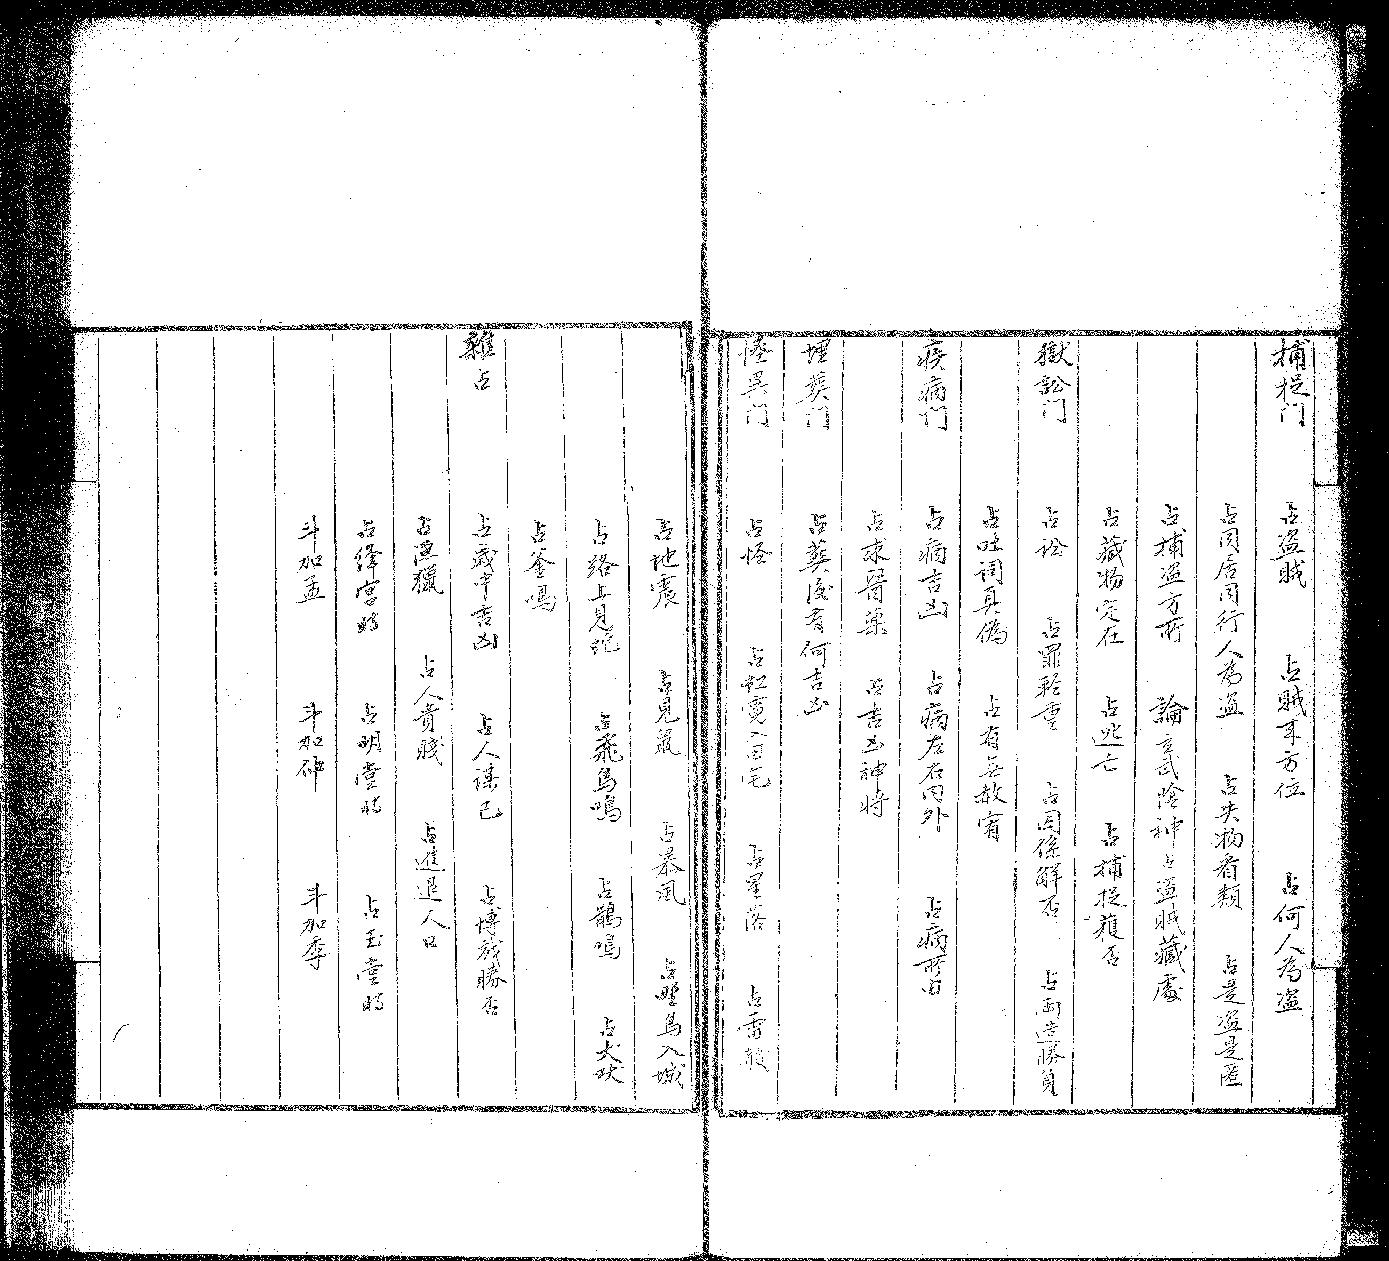 捕捉门　占盗贼　占贼来方位　占何人為盗
占同居同行人為盗　占失物看類　占是盗是匪
占捕盗方所　論玄武陰神占盗贼藏處
占藏物究在　占逃亡　占捕捉獲否
獄訟门　占讼　占罪轻重　占関係解否　占両造勝負
占吐词真偽　占有无赦宥
疾病门　占病吉凶　占病左右内外　占病所由
占求醫藥　占吉凶神将
埋葬门　占葬後有何吉凶
怪異门　占怪　占虹霓入宅　占星落　占雷殺
占地震　占見鼠　占暴風　占野鳥入城
占路上見蛇　占飛鳥鳴　占鵲鳴　占犬吠
占釜鳴
雜占　占歲中吉凶　占人謀己　占博戏勝否
占漁獵　占人贵賤　占進退人口
占绛宮時　占明堂時　占玉堂時
斗加孟　斗加仲　斗加季